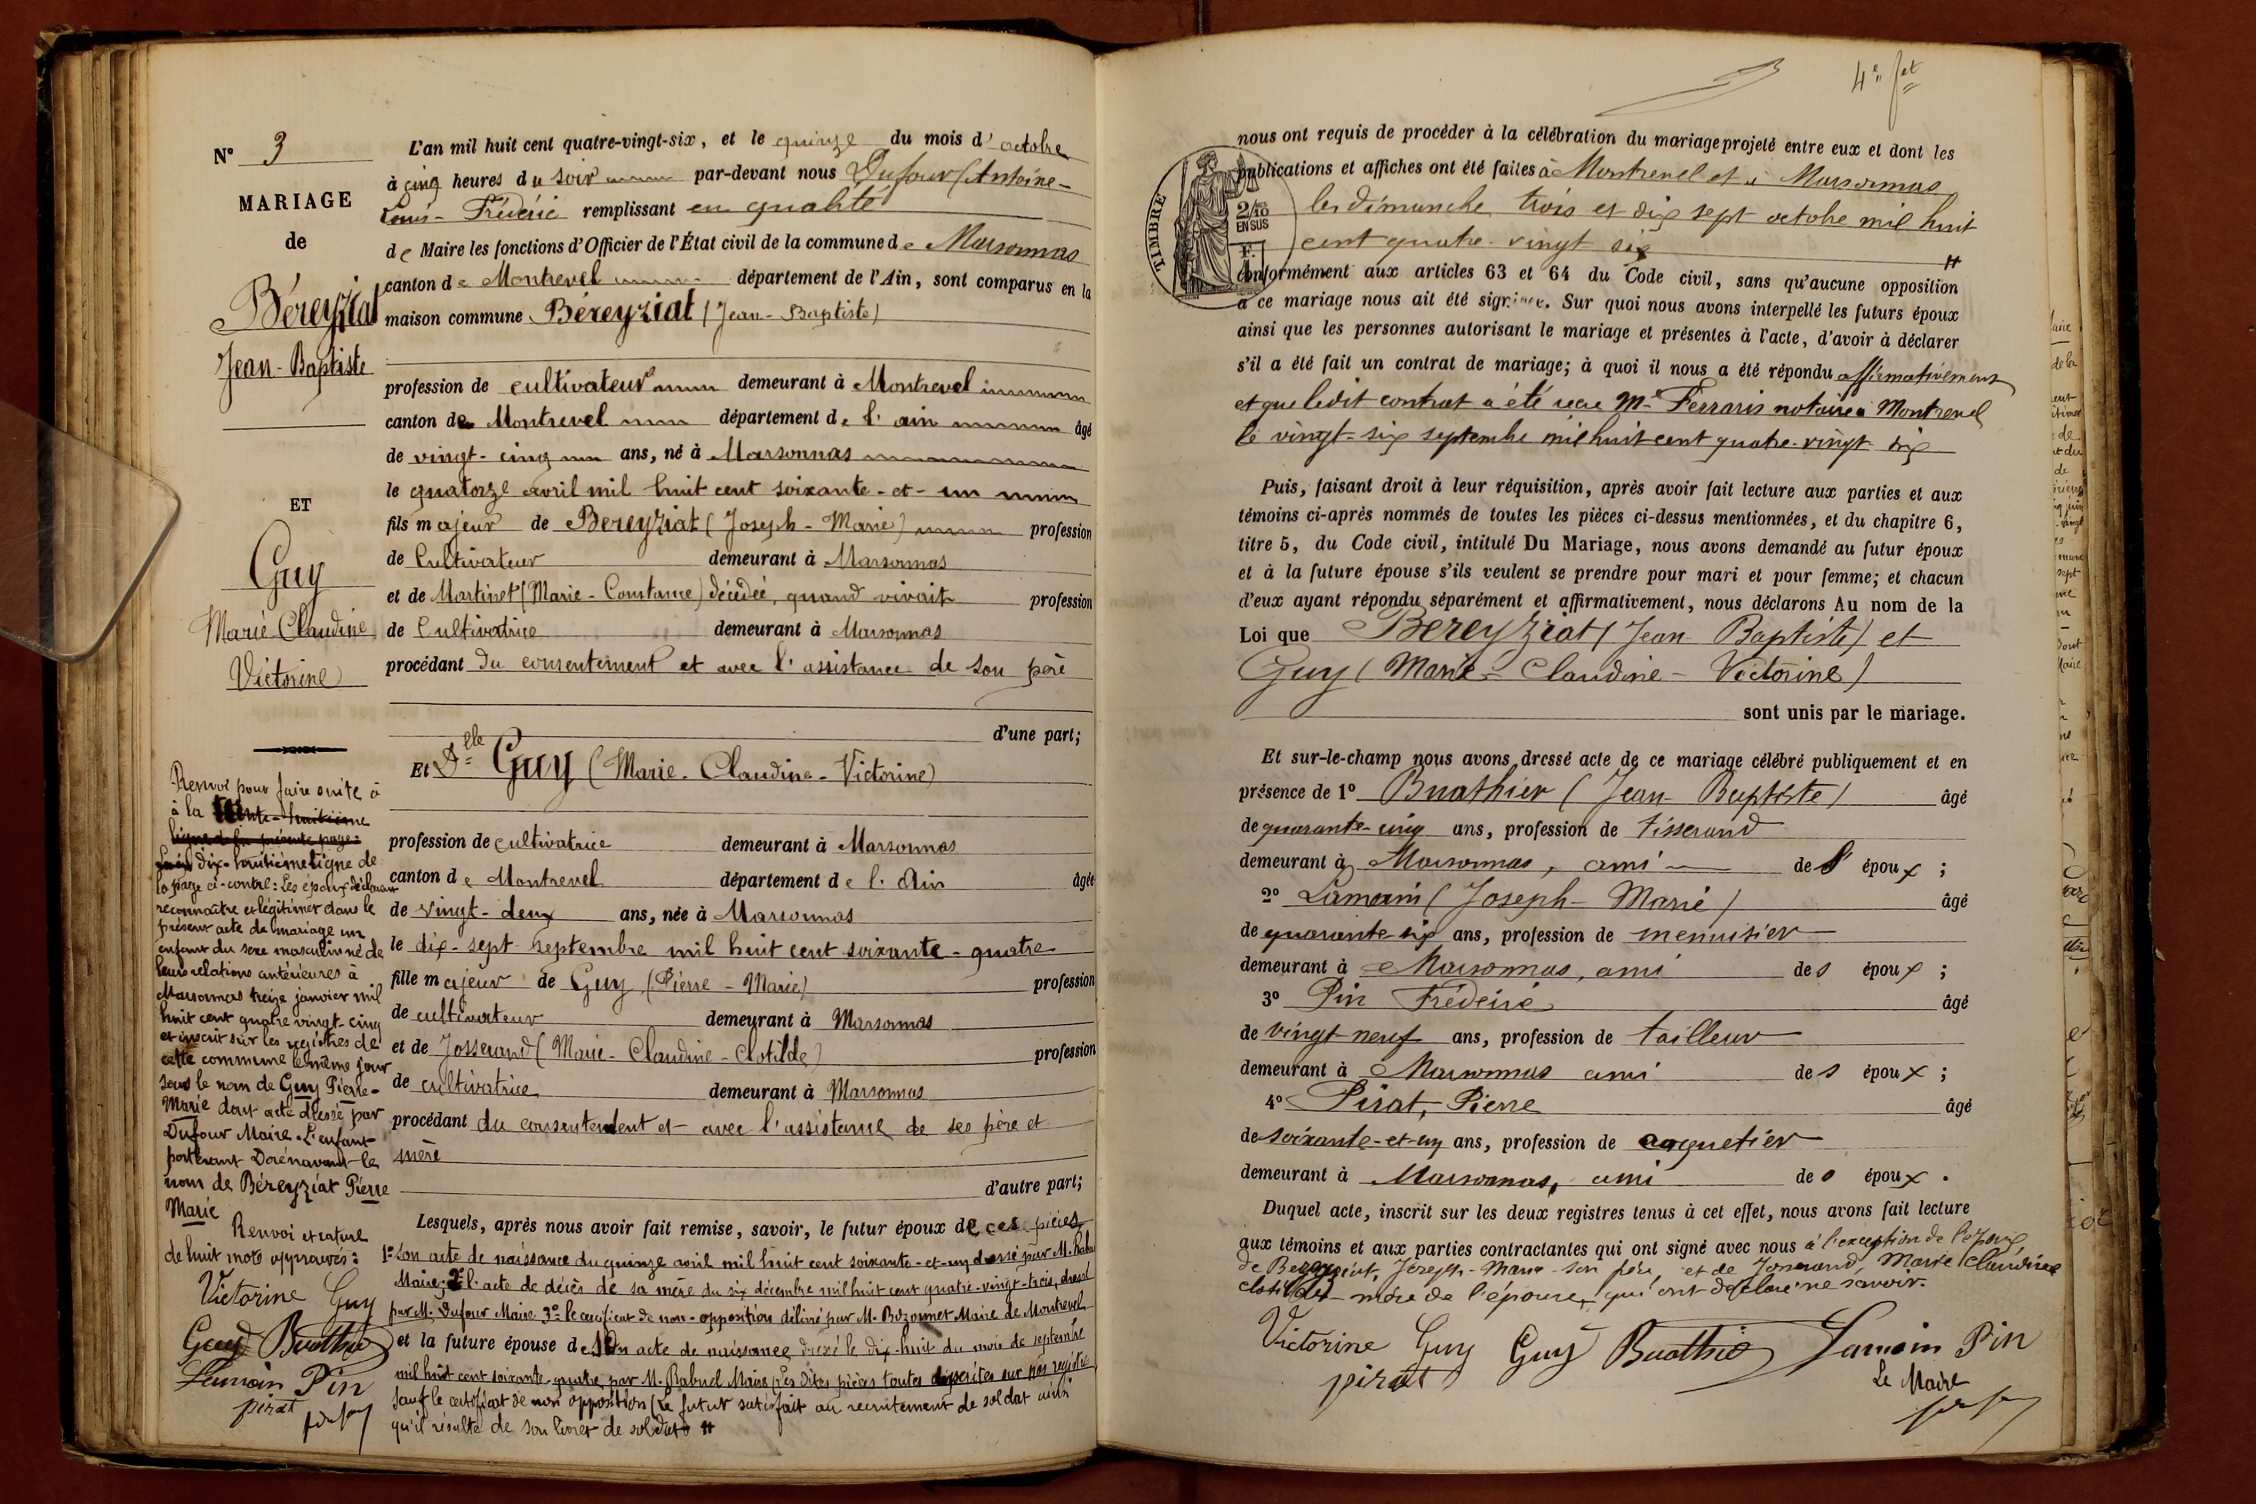 N° 3
MARIAGE
de
Béreyziat
Jean-Baptiste
ET
Guy
Marie-Claudine
Victorine
Renvoi pour faire suite à
à la trente-huitième
ligne de la présente page:
dix-huitième ligne de
la page ci-contre: Les époux déclarent
reconnaître et légitimer dans le
présent acte de mariage un
enfant du sexe masculin né de
leurs relations antérieures à
Marsonnas treize janvier mil
huit cent quatre vingt-cinq
et inscrit sur les registres de
cette commune le même jour
sous le nom de Guy Pierre-
Marie dont acte dressé par
Dufour Maire. L'enfant
portera Dorénavant le
nom de Béreyziat Pierre
Marie
Renvoi et rature
de huit mots approuvés:
Victorine Guy
Guy Buathier
Lamain Pin
pirat
L'an mil huit cent quatre-vingt-six, et le quinze du mois d'octobre
à cinq heures du soir par-devant nous Dufour (Antoine-
Louis-Frédéric remplissant en qualité
de Maire les fonctions d'Officier de l'État civil de la commune de Marsonnas
canton de Montrevel département de l'Ain, sont comparus en la
maison commune Béreyziat (Jean-Baptiste)
profession de cultivateur demeurant à Montrevel
canton de Montrevel département de l'ain âgé
de vingt-cinq ans, né à Marsonnas
le quatorze avril mil huit cent soixante-et-un
fils majeur de Bereyziat (Joseph-Marie) profession
de Cultivateur demeurant à Marsonnas
et de Martinet (Marie-Constance) décédée, quand vivait profession
de Cultivatrice demeurant à Marsonnas
procédant du consentement et avec l'assistance de son père
d'une part;
Et Dlle Guy (Marie-Claudine-Victorine)
profession de cultivatrice demeurant à Marsonnas
canton de Montrevel département de l'Ain âgée
de vingt-deux ans, née à Marsonnas
le dix-sept septembre mil huit cent soixante-quatre
fille majeur de Guy (Pierre-Marie) profession
de cultivateur demeurant à Marsonnas
et de Josserand (Marie-Claudine-Clotilde) profession
de cultivatrice demeurant à Marsonnas
procédant du consentement et avec l'assistance de ses père et
mère
d'autre part;
Lesquels, après nous avoir fait remise, savoir, le futur époux de ces pièces
1° Son acte de naissance du quinze avril mil huit cent soixante-et-un dressé par M. Rabuel
Maire; 2° l'acte de décès de sa mère du six décembre mil huit cent quatre-vingt-trois, dressé
par M. Dufour Maire 3° le certificat de non-opposition délivré par M. Bozonnet Maire de Montrevel
et la future épouse de son acte de naissance dressé le dix-huit du mois de septembre
mil huit cent soixante quatre par M. Rabuel Maire, les dites pièces toutes inscrites sur nos registres
sauf le certificat de non opposition (Le futur satisfait au recrutement de soldat ainsi
qu'il résulte de son livret de soldat #
4e fet
TIMBRE
2/10
EN SUS
nous ont requis de procéder à la célébration du mariage projeté entre eux et dont les
publications et affiches ont été faites à Montrevel et à Marsonnas
les dimanche trois et dix sept octobre mil huit
cent quatre-vingt six #
conformément aux articles 63 et 64 du Code civil, sans qu'aucune opposition
à ce mariage nous ait été signifiée. Sur quoi nous avons interpellé les futurs époux
ainsi que les personnes autorisant le mariage et présentes à l'acte, d'avoir à déclarer
s'il a été fait un contrat de mariage; à quoi il nous a été répondu affirmativement
et que ledit contrat a été reçu Me Ferraris notaire à Montrevel
le vingt-six septembre mil huit cent quatre-vingt six
Puis, faisant droit à leur réquisition, après avoir fait lecture aux parties et aux
témoins ci-après nommés de toutes les pièces ci-dessus mentionnées, et du chapitre 6,
titre 5, du Code civil, intitulé Du Mariage, nous avons demandé au futur époux
et à la future épouse s'ils veulent se prendre pour mari et pour femme; et chacun
d'eux ayant répondu séparément et affirmativement, nous déclarons Au nom de la
Loi que Béreyziat (Jean Baptiste) et
Guy (Marie-Claudine-Victorine)
sont unis par le mariage.
Et sur-le-champ nous avons dressé acte de ce mariage célébré publiquement et en
présence de 1° Buathier (Jean-Baptiste) âgé
de quarante-cinq ans, profession de tisserand
demeurant à Marsonnas, ami de l'époux;
2° Lamain (Joseph-Marie) âgé
de quarante-six ans, profession de menuisier
demeurant à Marsonnas, ami des époux;
3° Pin Frédéric âgé
de vingt neuf ans, profession de tailleur
demeurant à Marsonnas ami des époux;
4° Pirat, Pierre âgé
de soixante-et-un ans, profession de coquetier
demeurant à Marsonnas, ami des époux.
Duquel acte, inscrit sur les deux registres tenus à cet effet, nous avons fait lecture
aux témoins et aux parties contractantes qui ont signé avec nous à l'exception de l'époux
de Bereyziat, Joseph-Marie son père et de Josserand, Marie Claudine
Clotilde mère de l'épouse, qui ont déclaré ne savoir.
Victorine Guy Guy Buathier Lamain Pin
pirat
Le Maire